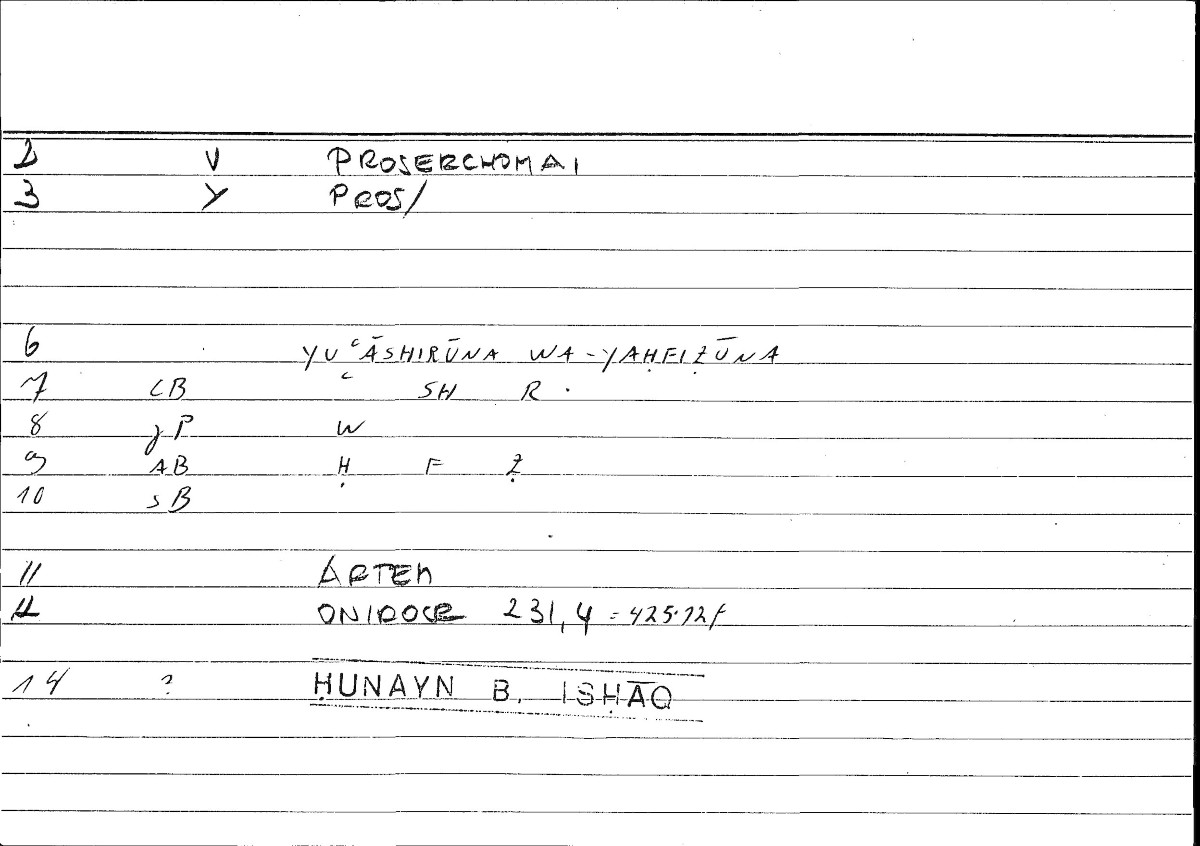 2 V PROSERCHOMAI
3 Y PROS/
6 YUʿĀSHIRŪNA WA-YAḤFIẒŪNA
7 CB ʿ SH R .
8 gP W
9 AB Ḥ F Ẓ
10 sB
11 ARTEM
12 ONIROCR 231,4 = 425.12f
14 ? ḤUNAYN B. ISḤĀQ